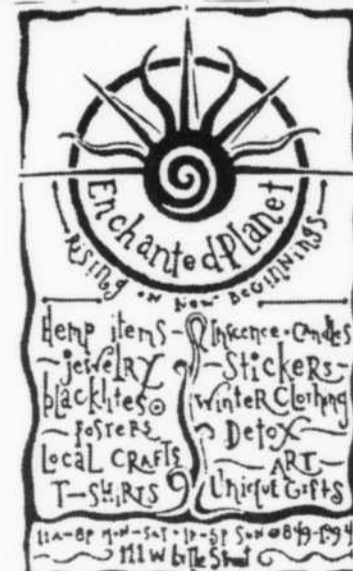 Enchanted Planet
Rising on New Beginnings
Hemp items
jewelry
blacklites
Posters
Local Crafts
T-Shirts
Inscence • Candles
Stickers
Winter Clothing
Detox
ART
Unique Gifts
11A-8P MON-SAT • 1P-5P SUN
111 W